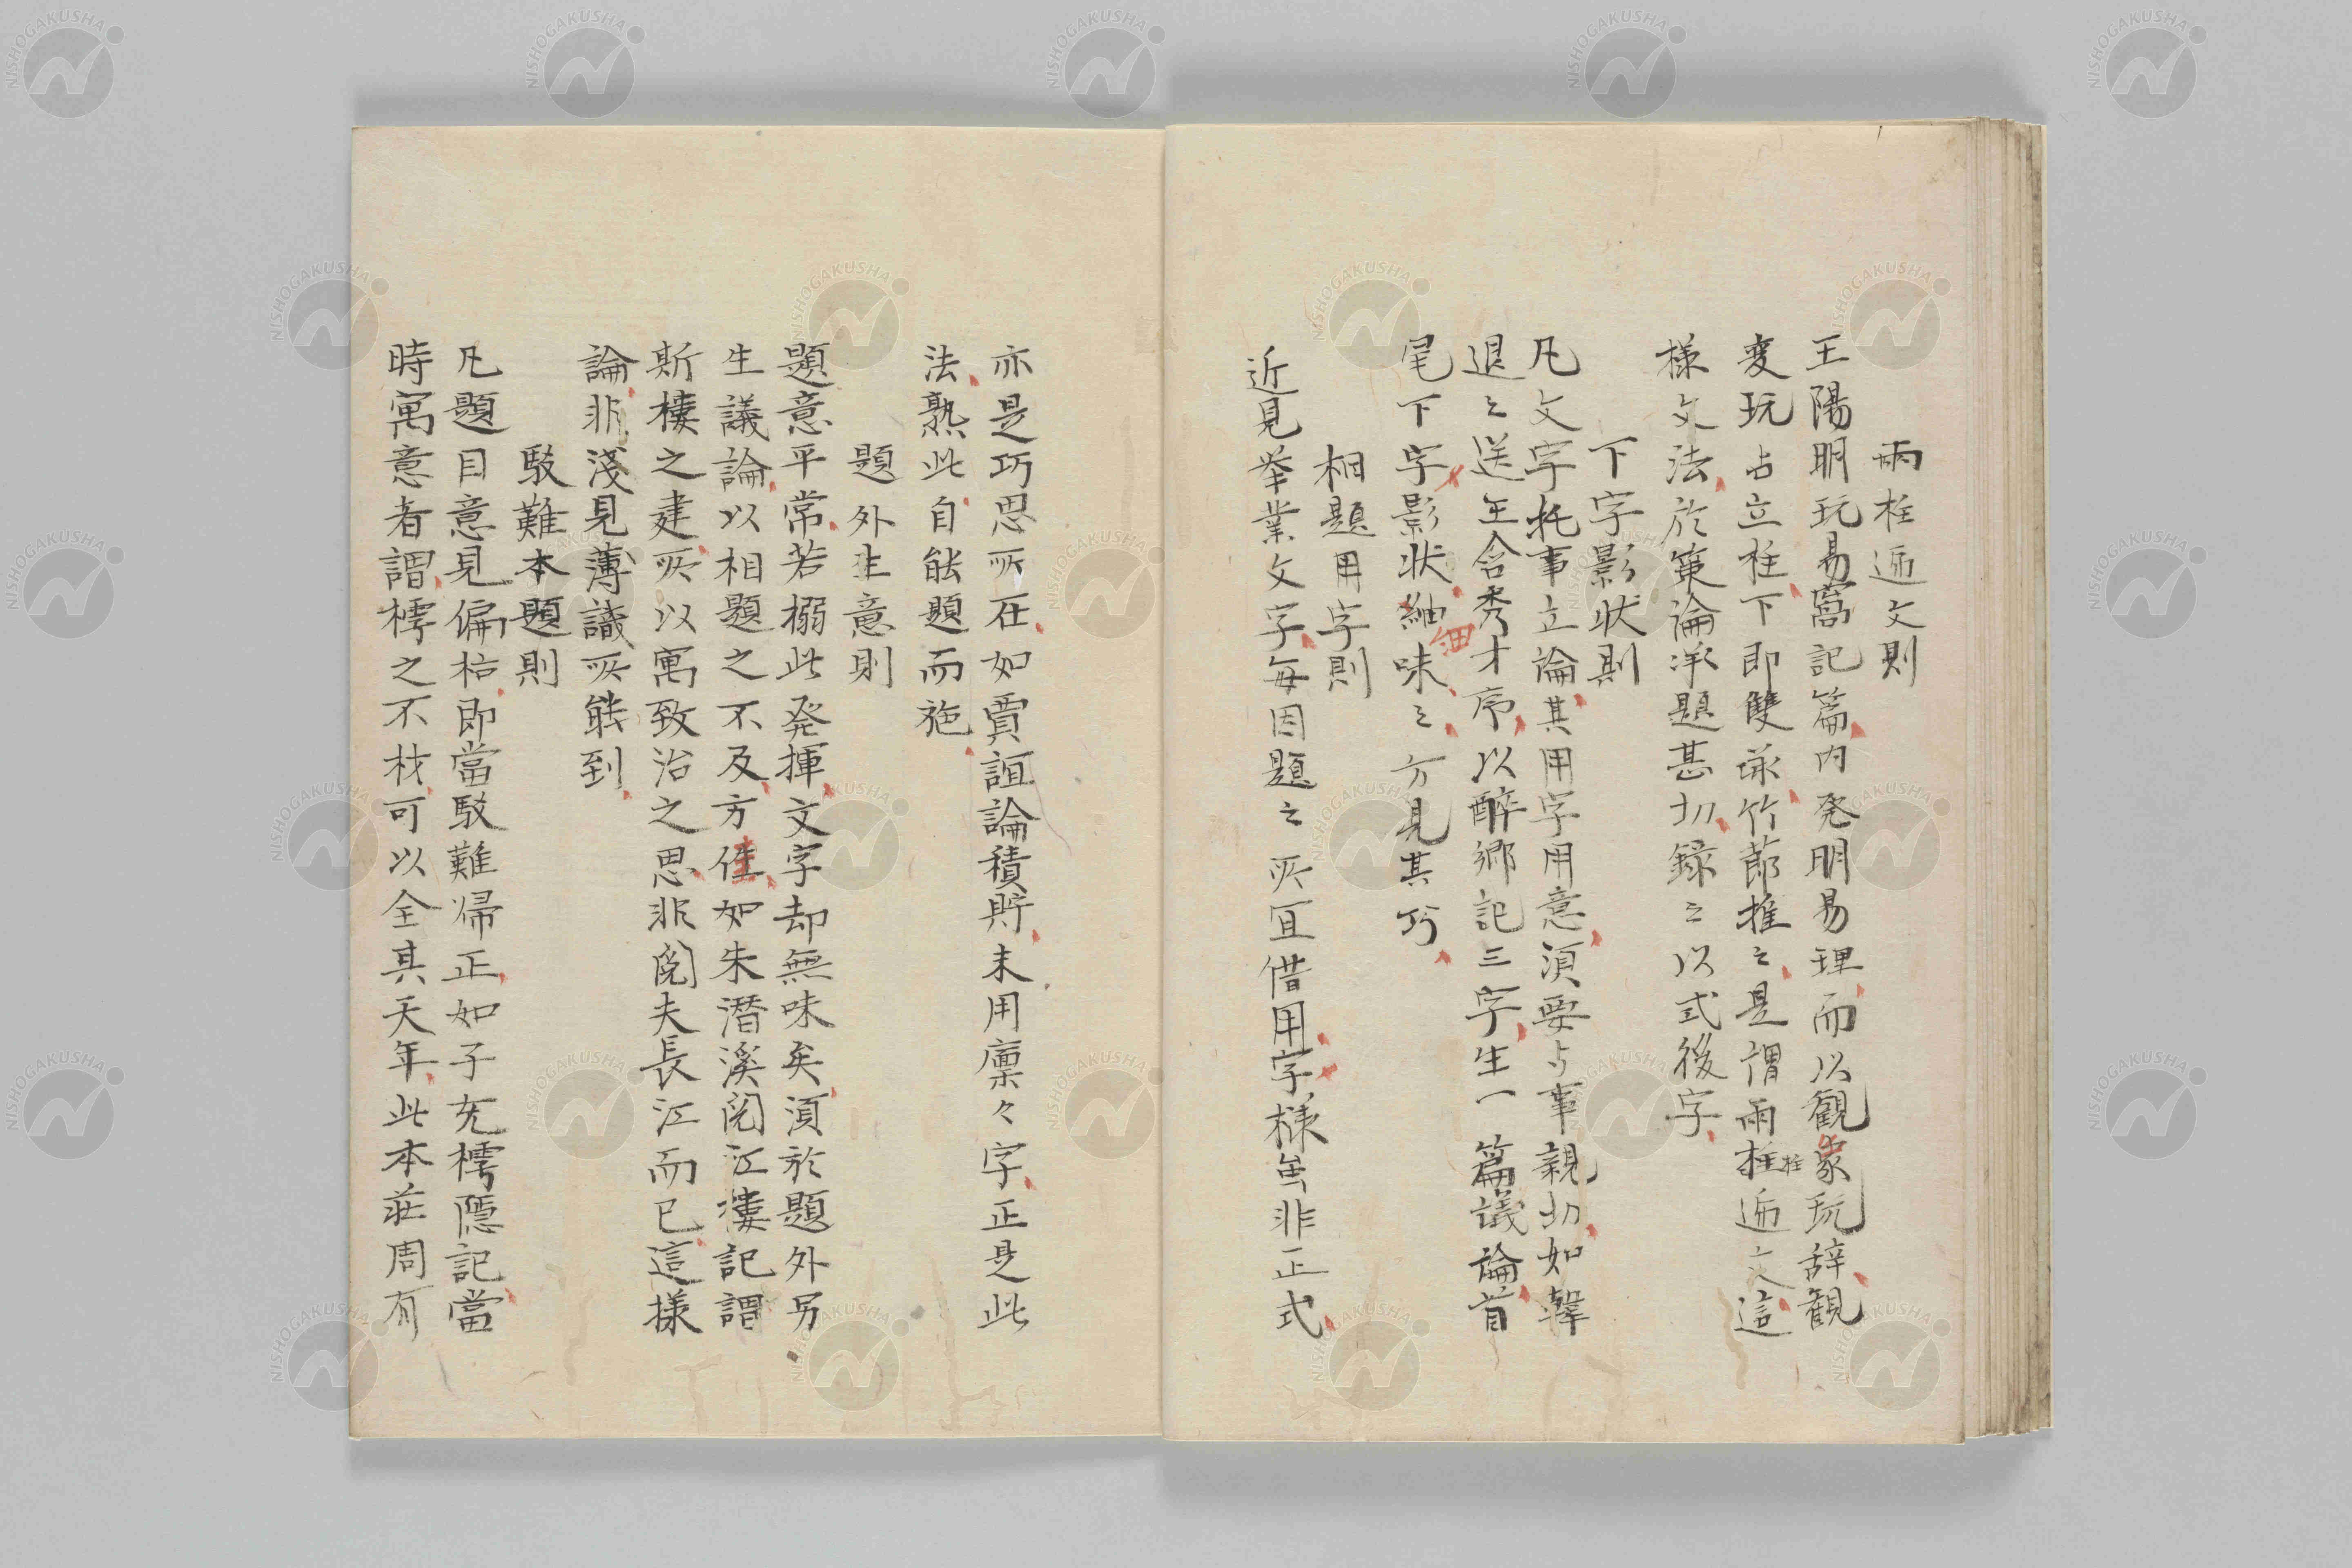 兩柱遞文則
王陽明玩易窩記篇内発明易理而以觀象玩辞観
変玩占立柱下即雙承竹節推之是謂兩柱遞文這
様文法於策論承題甚切録之以式後字
下字影状則
凡文字托事立論其用字用意須要与事親切如韓
退之送王含秀才序以醉郷記三字生一篇議論首
尾下字影状紬味之方見其巧
相題用字則
近見挙業文字毎因題之所宜借用字様虽非正式
亦是巧思所在如賈誼論積貯末用廩々字正是此
法熟此自能題而施
題外生意則
題意平常若搦此発揮文字却無味矣須於題外另
生議論以相題之不及方佳如朱潜溪閲江樓記謂
斯樓之建所以寓致治之思非閲夫長江而已這様
論非淺見薄識所能到
駁難本題則
凡題目意見偏枯即當駁難帰正如子充樗隱記當
時寓意者謂樗之不材可以全其天年此本荘周有
柱
細
NISHOGAKUSHA